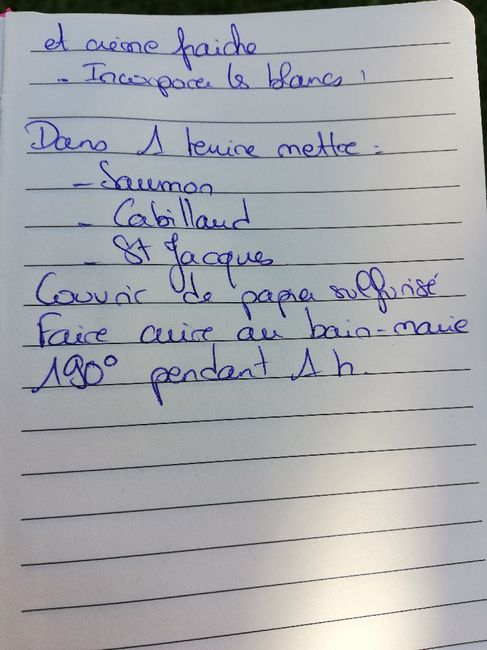 et crème fraiche
- Incorporer les blancs !
Dans 1 terrine mettre :
- Saumon
- Cabillaud
- St Jacques
Couvrir de papier sulfurisé
Faire cuire au bain-marie
190° pendant 1 h.